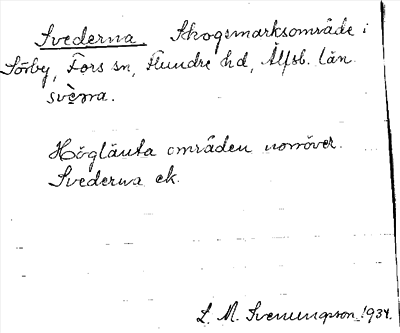 Svederna. Skogsmarksområde i
Sörby, Fors sn, Flundre hd, Älfsb. län.
svè̄ɳa.
Högläuta områden norröver.
Svederna ek.
L. M. Svenungsson 1934.